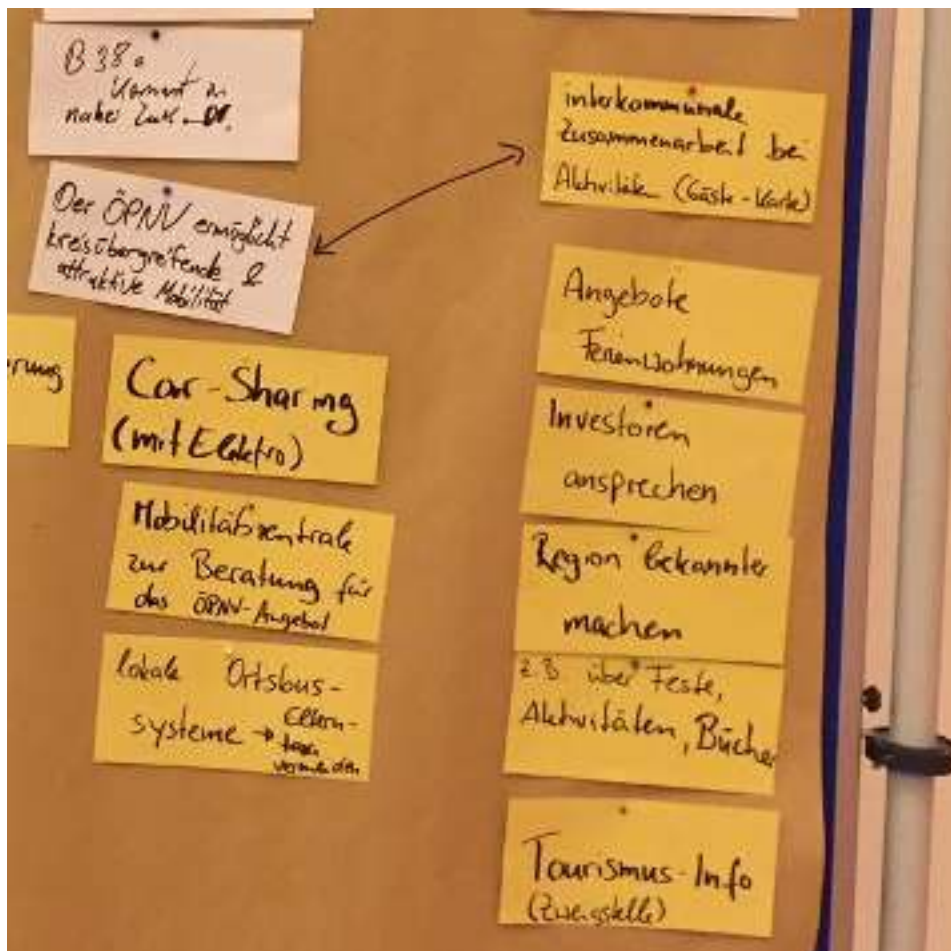 B 38a
kommt in
naher Zuk
Der ÖPNV ermöglicht
kreisübergreifende &
attraktive Mobilität
rung
Car-Sharing
(mit Elektro)
Mobilitätszentrale
zur Beratung für
das ÖPNV-Angebot
lokale Ortsbus-
systeme → Eltern-
taxi
vermeiden
interkommunale
Zusammenarbeit bei
Aktivitäten (Gäste-Karte)
Angebote
Ferienwohnungen
Investoren
ansprechen
Region bekannter
machen
z.B. über Feste,
Aktivitäten, Bücher
Tourismus-Info
(Zweigstelle)